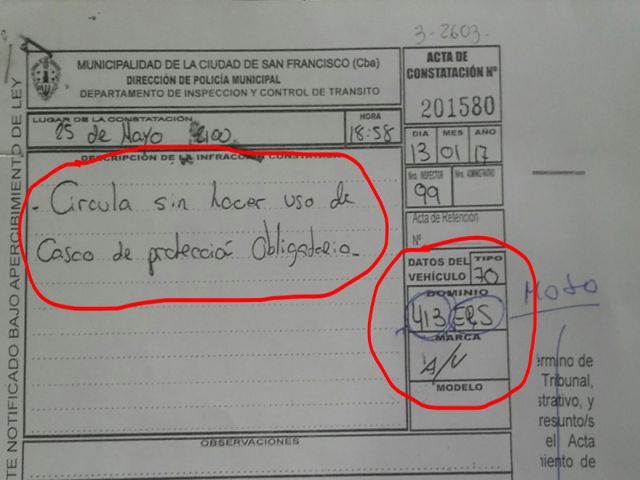 3-2603.
MUNICIPALIDAD DE LA CIUDAD DE SAN FRANCISCO (Cba)
DIRECCIÓN DE POLICÍA MUNICIPAL
DEPARTAMENTO DE INSPECCION Y CONTROL DE TRANSITO
ACTA DE
CONSTATACIÓN Nº
201580
LUGAR DE LA CONSTATACIÓN
25 de Mayo 2100.
HORA
18:58
DIA MES AÑO
13 01 17
DESCRIPCIÓN DE LA INFRACCIÓN CONSTATADA
- Circula sin hacer uso de
Casco de protección Obligatorio.
Nro. INSPECTOR
99
Nro. ADMINISTRATIVO
Acta de Retención
Nº
DATOS DEL
VEHÍCULO
TIPO
70
DOMINIO
413 ERS
MARCA
A/V
MODELO
MOTO
OBSERVACIONES
TE NOTIFICADO BAJO APERCIBIMIENTO DE LEY
érmino de
Tribunal,
strativo, y
resunto/s
el Acta
niento de